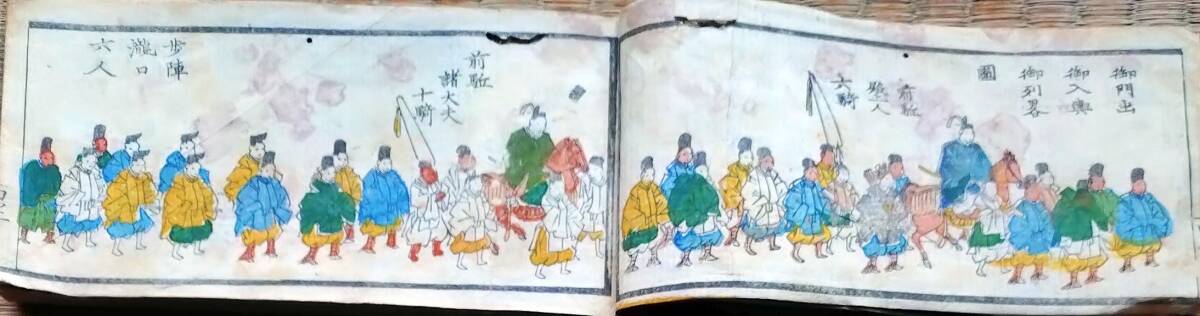 御門出
御入輿
御列畧
圖
前駈
殿上人
六騎
前駈
諸大夫
十騎
歩陣
瀧口
六人